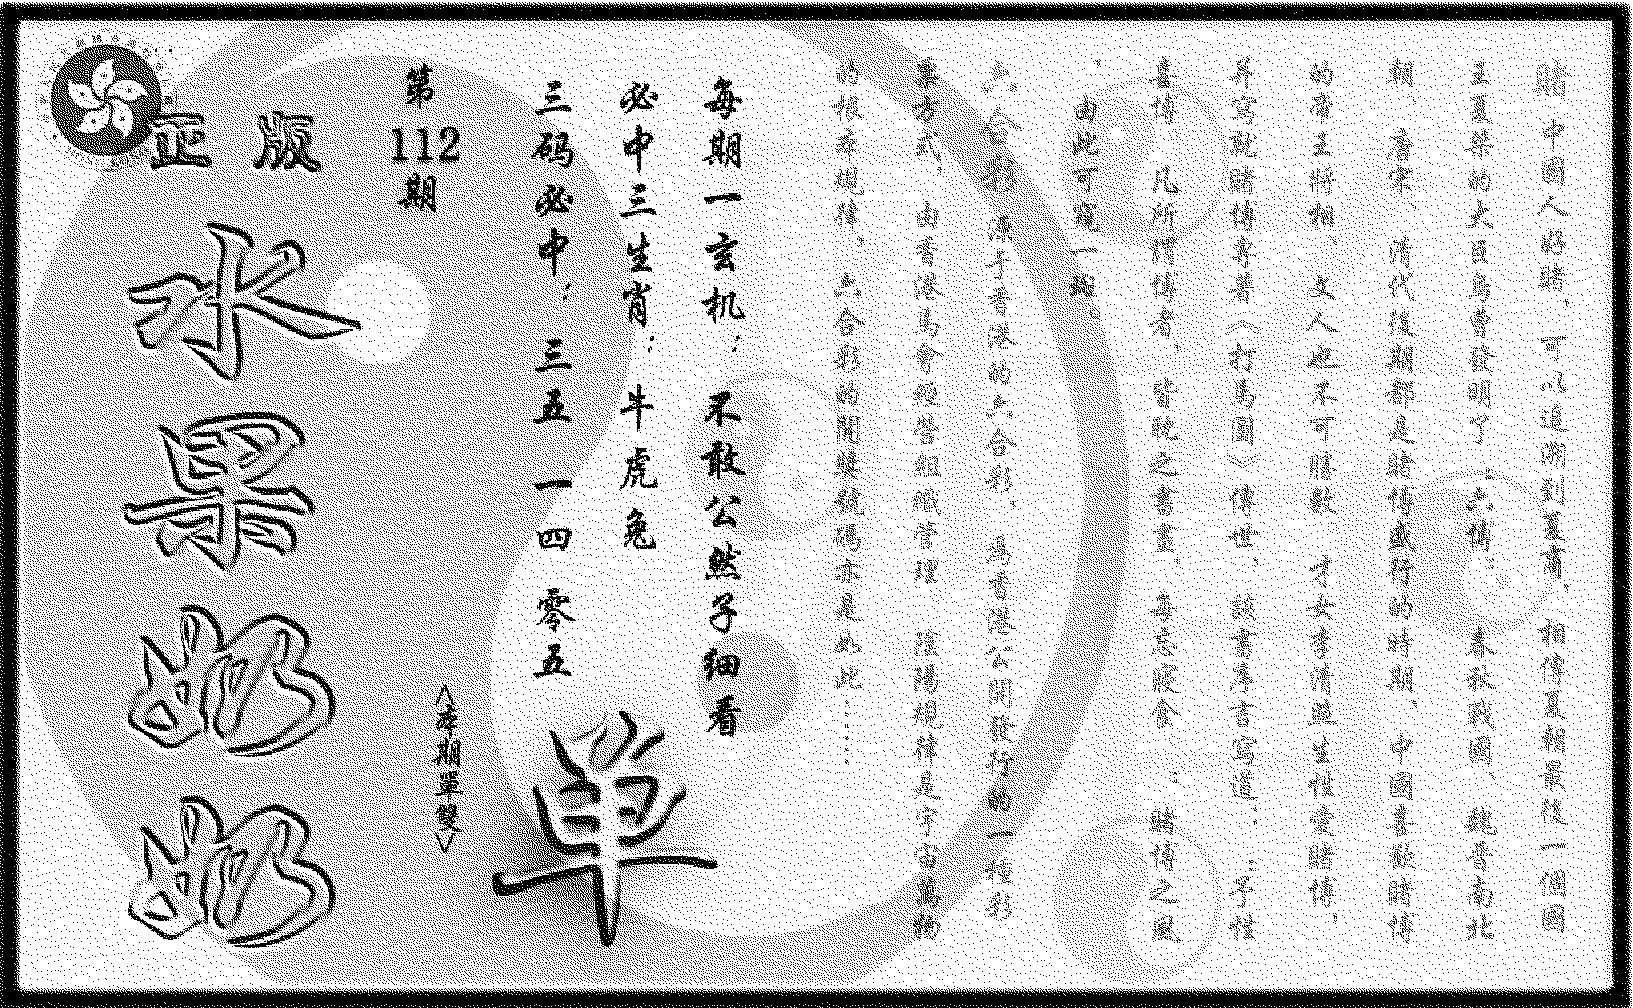 中國人好賭，可以追溯到夏商，相傳夏 最後一個國
王夏桀的大臣烏曹發明了「六博」 春秋戰國、魏晉南北
朝 唐宋 清代後期都是賭博盛行的時期，中國喜歡賭博
的帝王將相 文人也不可勝數 才女李清照生性愛賭博，
并寫就賭博專著〈打馬圖〉傳世，該書序言寫道：「予性
喜博 凡所謂博者，皆耽之晝 ，每忘寢食 」：賭博之風
，由此可窺一斑
六合彩 源于香港的六合彩，是香港公開發行的一種彩
票方式，由香港馬會經營組織管理 陰陽規律是宇宙萬物
的根本規律，六合彩的開獎號碼亦是如此……
每期一玄机：不敢公然子细看
必中三生肖：牛虎兔
三码必中：三五 一四 零五
单
〈本期單雙〉
第112期
正版
水果奶奶